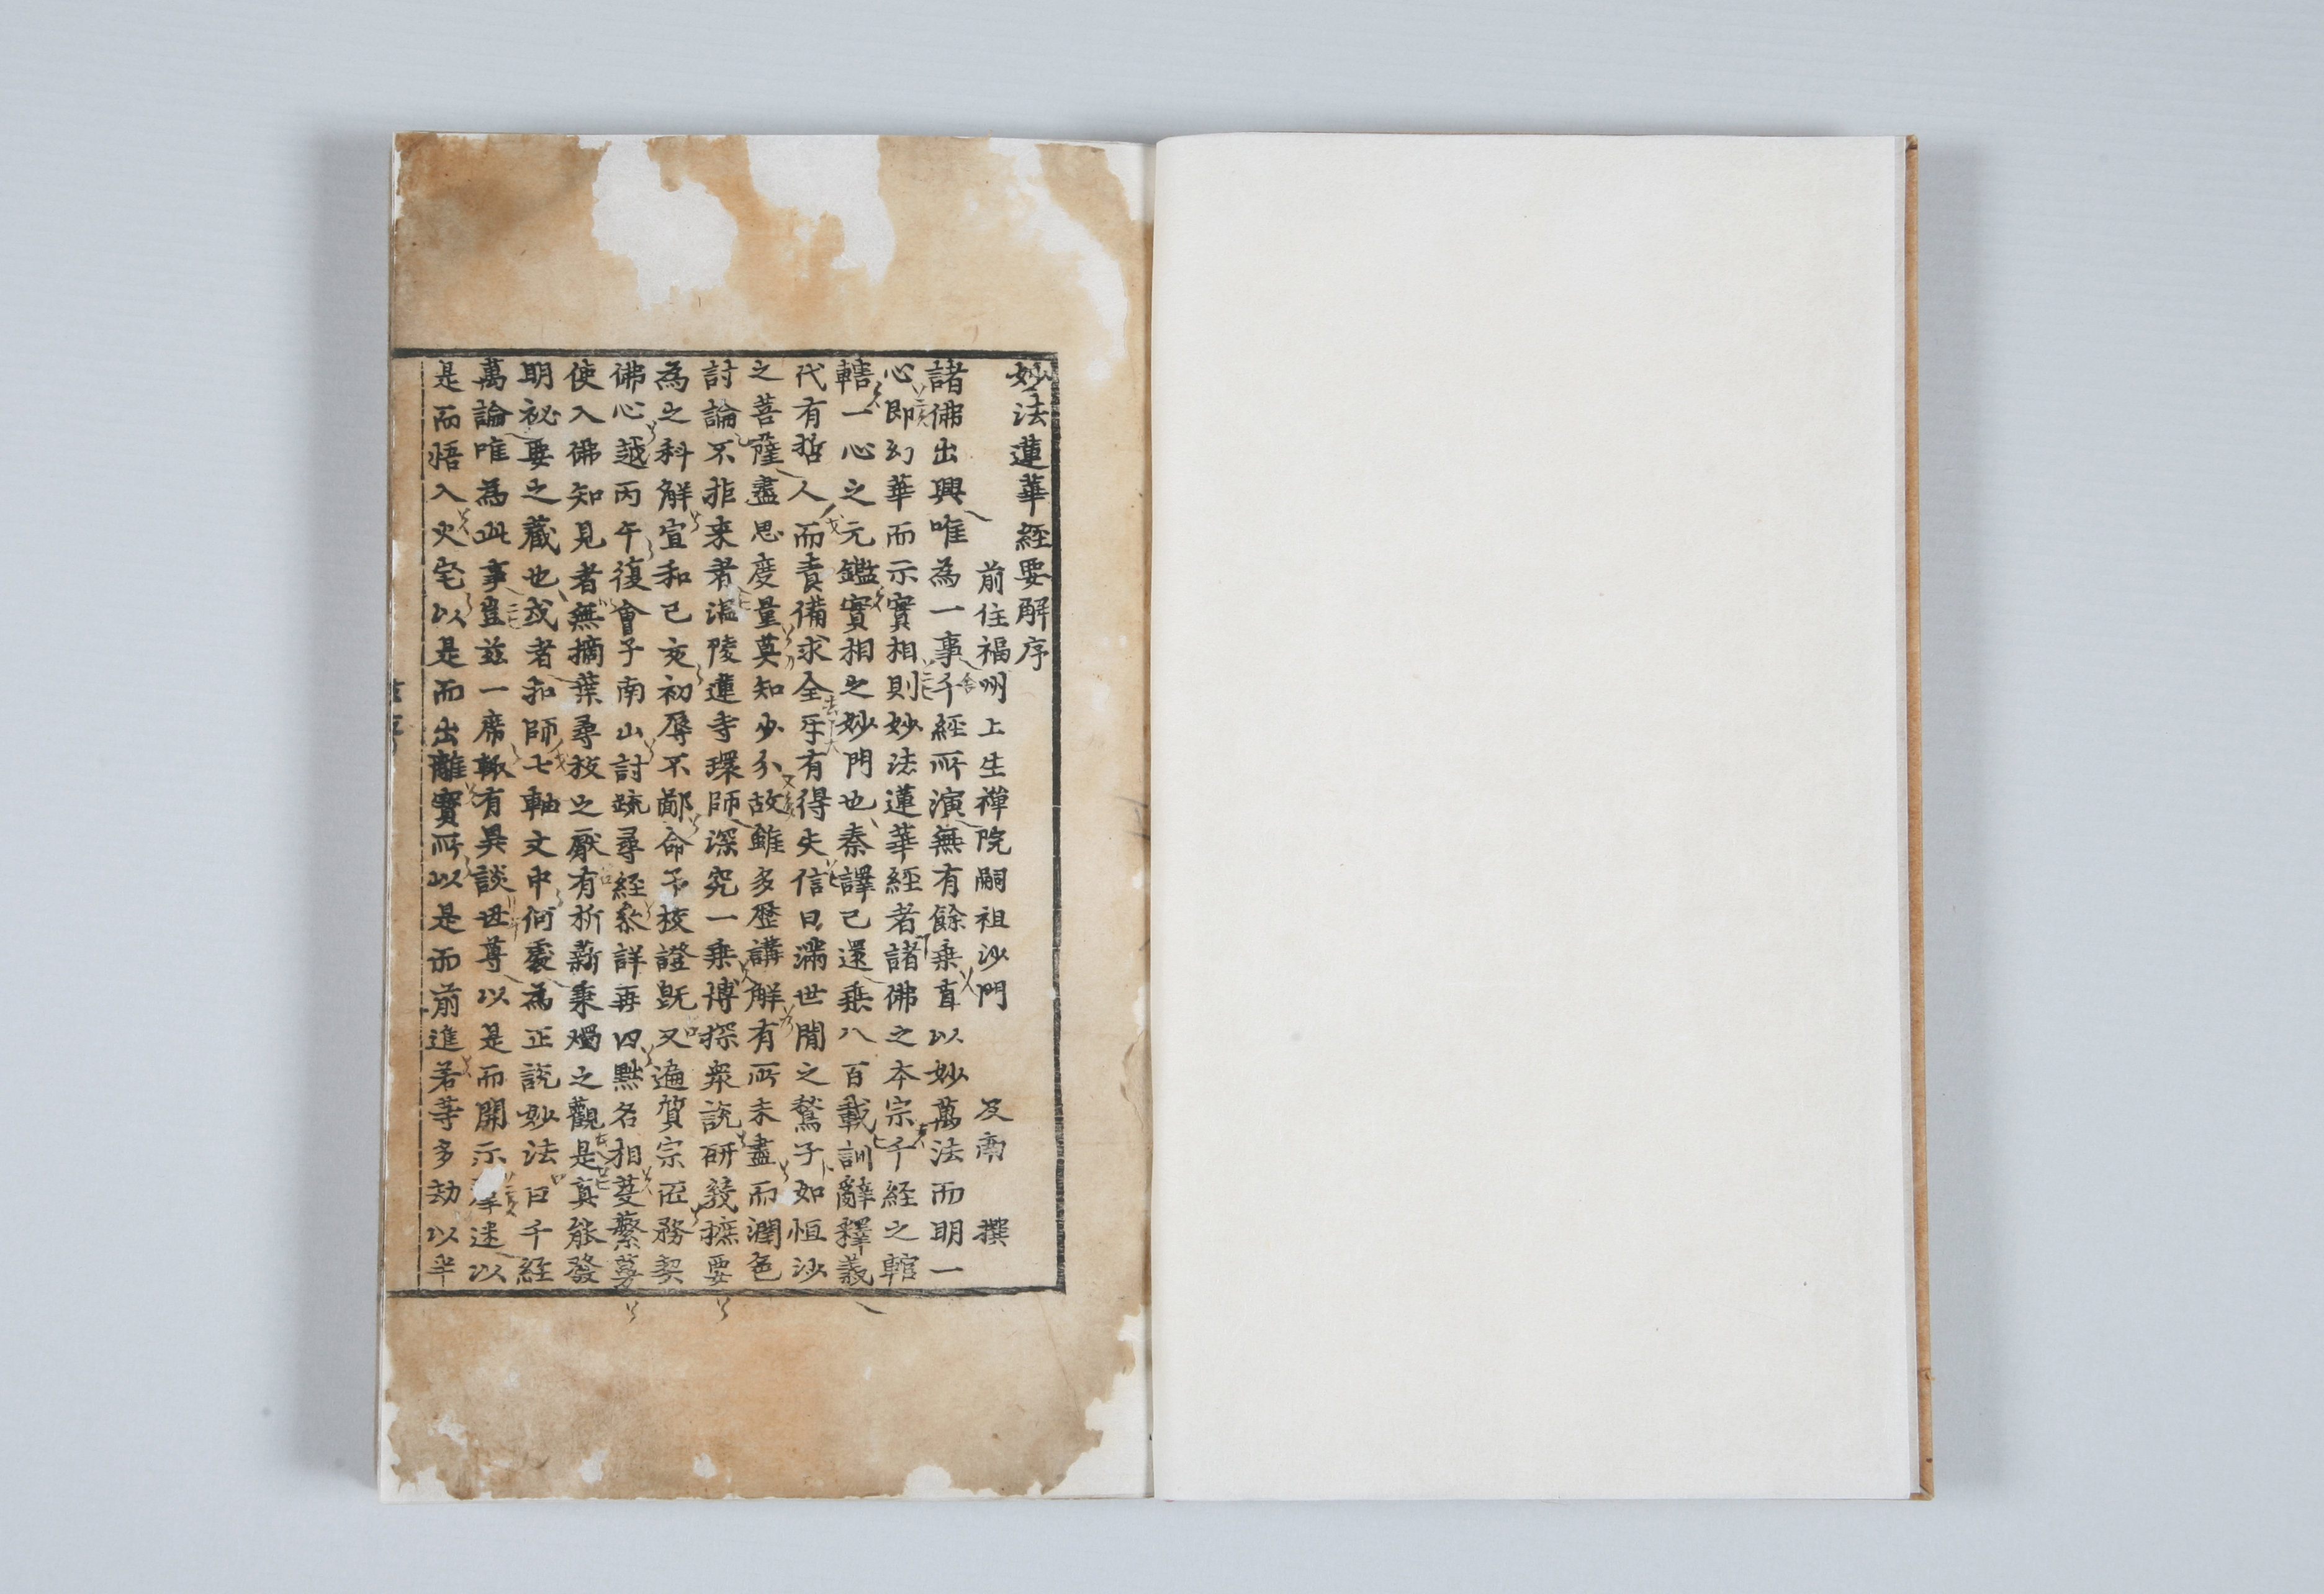 妙法蓮華經要解序
前住福州上生禪院嗣祖沙門 及南 撰
諸佛出興唯為一事千經所演無有餘乗直以妙萬法而明一
心即幻華而示實相則妙法蓮華經者諸佛之本宗千経之輨
轄一心之元鑑實相之妙門也秦譯已還乗八百載訓辭釋義
代有哲人而責備求全乐有得失信日滿世閒之鶖子如恒沙
之菩薩盡思度量莫知少分故雖多歴講解有所未盡而潤色
討論不非来者溫陵蓮寺環師深究一乗博探衆說研𥝠摭要
為之科解宣和己亥初辱不鄙命予挍證旣又遍質宗匠務契
佛心越丙午復會予南山討䟽尋經叅詳再四㸃名相芟蘩蔓
使入佛知見者無摘葉尋枝之厭有析薪秉燭之觀是真能發
明祕要之藏也或者扣師七軸文中何處為正說妙法曰千経
萬論唯為此事豈茲一席輙有異談世尊以是而開示羣迷以
是而悟入火宅以是而出離寳所以是而前進若等多劫以半